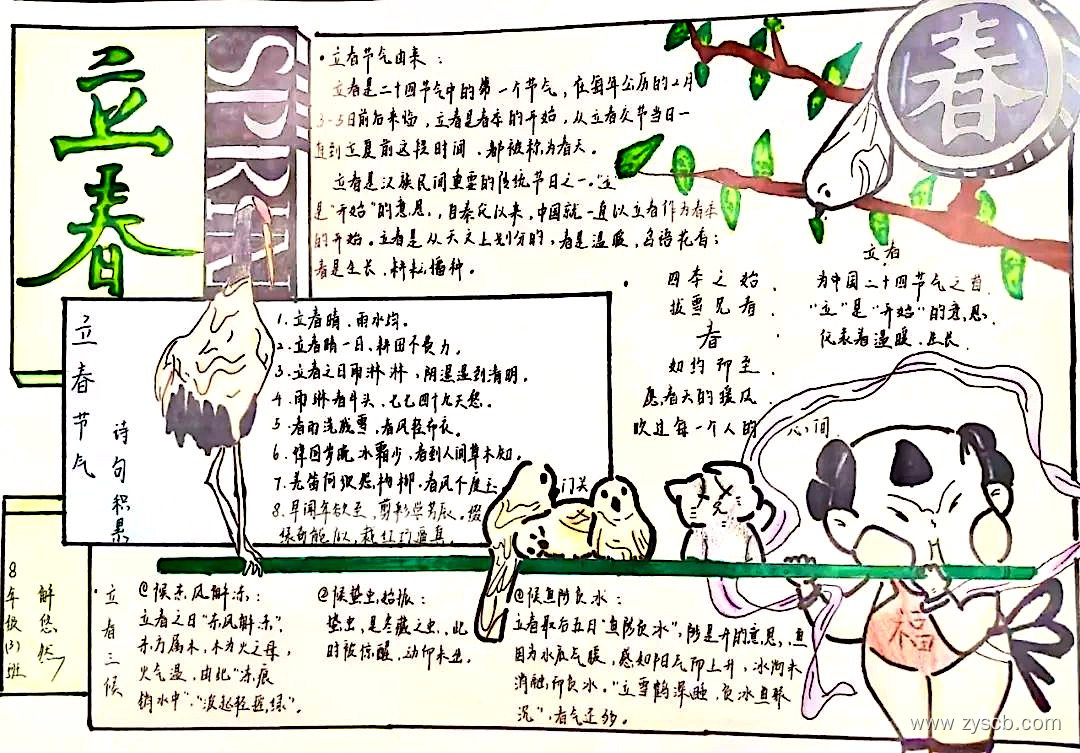 立
春
SPRIN
春
· 立春节气由来：
立春是二十四节气中的第一个节气，在每年公历的2月
3-5日前后来临，立春是春季的开始，从立春交节当日一
直到立夏前这段时间，都被称为春天。
立春是汉族民间重要的传统节日之一。"立"
是"开始"的意思，自秦代以来，中国就一直以立春作为春季
的开始。立春是从天文上划分的，春是温暖，鸟语花香；
春是生长，耕耘播种。
四季之始
拔雪见春
春
如约而至
愿春天的暖风
吹过每一个人的 间
立春
为中国二十四节气之首
"立"是"开始"的意思
代表着温暖、生长
立春节气
诗句积累
1.立春晴，雨水均。
2.立春晴一日，耕田不费力。
3.立春之日雨淋淋，阴湿湿到清明。
4.雨淋春牛头，七七四十九天愁。
5.春雨洗残雪，春风轻布衣。
6.律回岁晚冰霜少，春到人间草木知。
7.羌笛何须怨杨柳，春风不度玉门关
8.早闻年欲至，剪彩学芳辰。缀
绿奇能似，裁红巧逼真。
8年级(1)班
解悠然
· 立春三候
@候东风解冻：
立春之日"东风解冻"，
东方属木，木为火之母，
火气温，由此"冻痕
销水中"，"波起轻摇绿"。
@候蛰虫始振：
蛰虫，是冬藏之虫，此
时被惊醒，动而未出
@候鱼陟负冰：
立春最后五日"鱼陟负冰"，陟是升的意思，鱼
因为水底气暖，感知阳气而上升，冰河未
消融，而负冰。"立雪鹤深睡，负冰鱼醉
沉"，春气还多。
福
www.zyscb.com